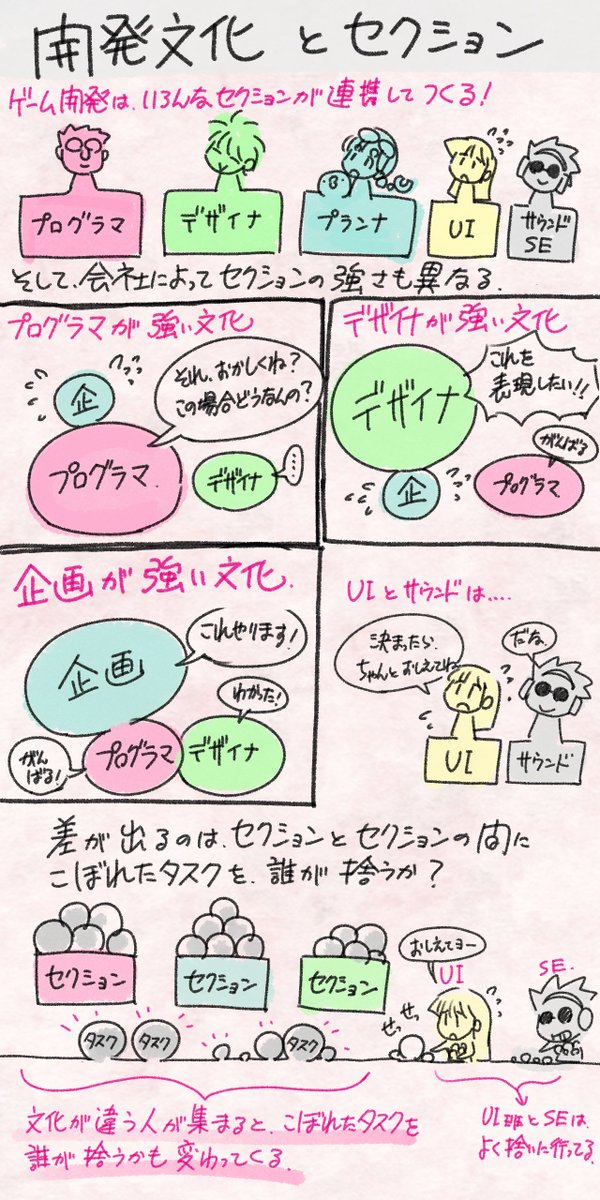 開発文化 と セクション
ゲーム開発は、いろんなセクションが連携してつくる!
プログラマ
デザイナ
プランナ
UI
サウンド
SE
そして、会社によってセクションの強さも異なる.
プログラマが強い文化
企
それ、おかしくね?
この場合どうなんの?
プログラマ.
デザイナ
....
デザイナが強い文化
デザイナ
これを
表現したい!!
がんばる
企
プログラマ
企画が強い文化.
企画
これやります!
わかった!
がん
ばる!
プログラマ
デザイナ
UIとサウンドは....
決まったら、
ちゃんとおしえてね
だな
UI
サウンド
差が出るのは、セクションとセクションの間に
こぼれたタスクを、誰が拾うか?
セクション
セクション
セクション
おしえてヨー
UI
SE.
せっ
せっ
タスク
タスク
タスク
文化が違う人が集まると、こぼれたタスクを
誰が拾うかも変わってくる.
UI班とSEは、
よく拾いに行ってる